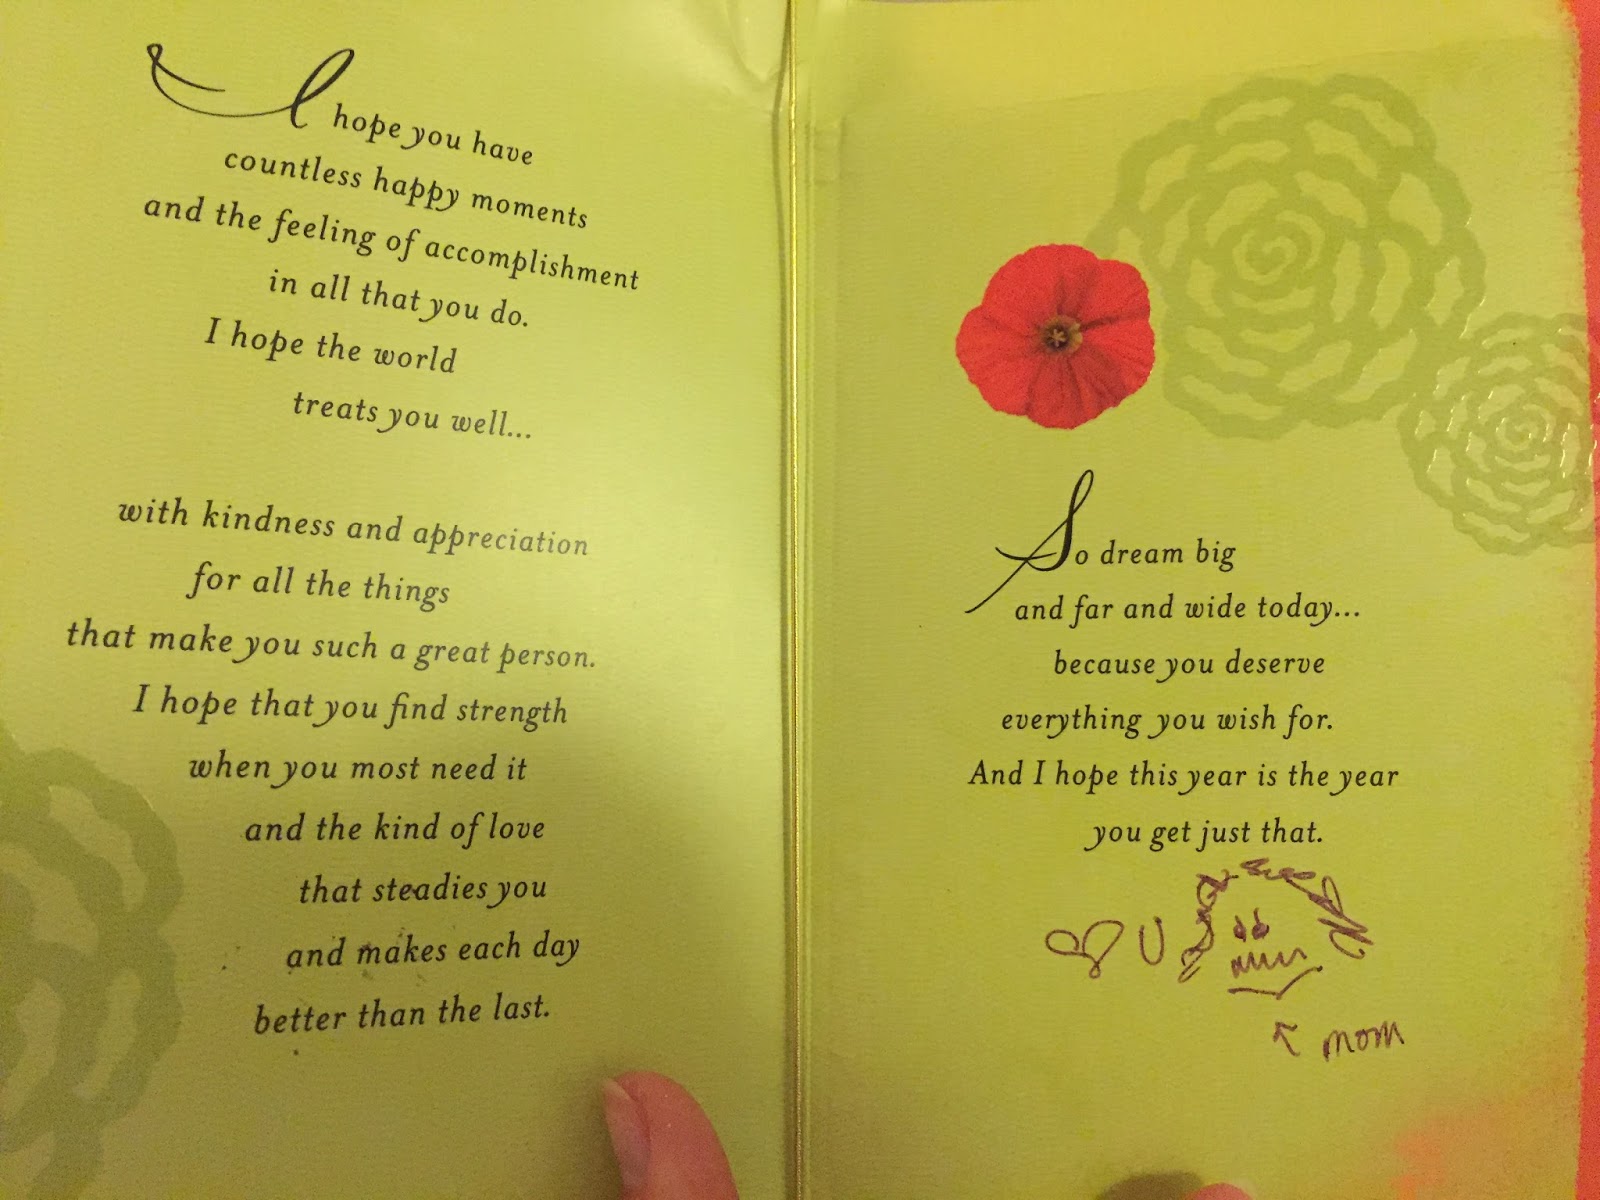 I hope you have
countless happy moments
and the feeling of accomplishment
in all that you do.
I hope the world
treats you well...
with kindness and appreciation
for all the things
that make you such a great person.
I hope that you find strength
when you most need it
and the kind of love
that steadies you
and makes each day
better than the last.
So dream big
and far and wide today...
because you deserve
everything you wish for.
And I hope this year is the year
you get just that.
U
mom